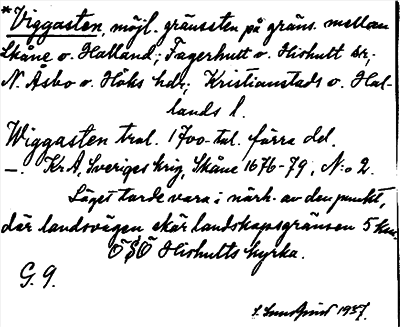 *Viggasten, möjl. gränssten på gräns. mellan
Skåne o. Halland; Fagerhult o. Hishult snr;
N. Åsbo o. Höks hdr; Kristianstads o. Hal-
lands l.
Wiggasten trol. 1700-tal. förra del.
—. KrA, Sveriges krig, Skåne 1676-79, N:o 2.
Läget torde vara i närh. av den punkt,
där landsvägen skär landskapsgränsen 5 km.
ÖSÖ Hishults kyrka.
G. 9.
1937.